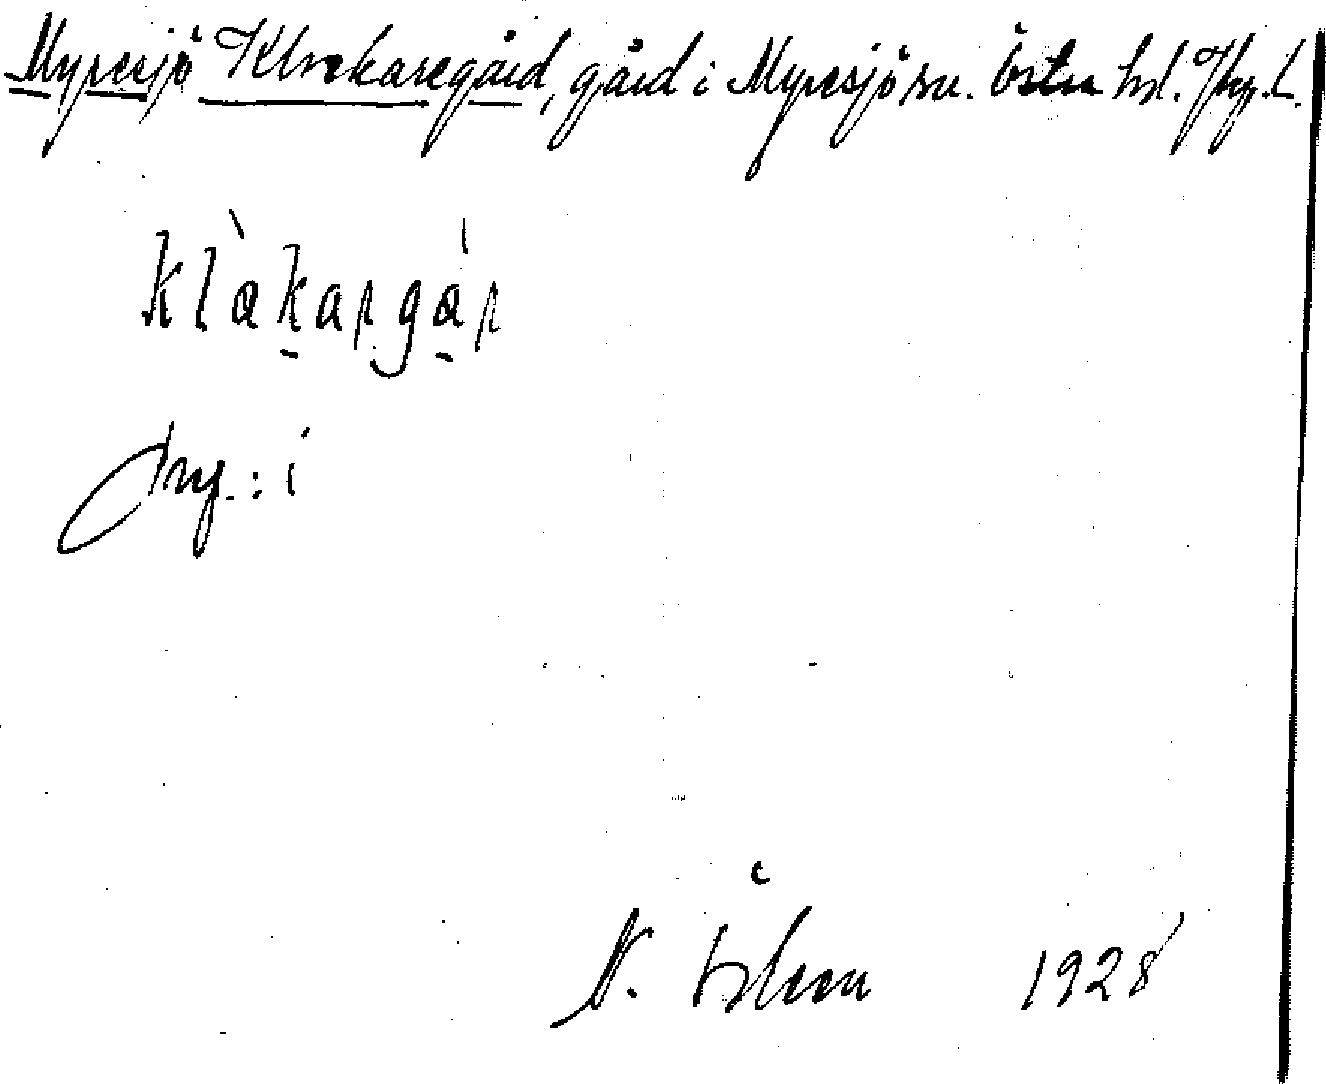 Myresjö Klockaregård, gård i Myresjö sn. Östra hd. Jkpg.l.
klàkargàr
prep.: i
N.            1928